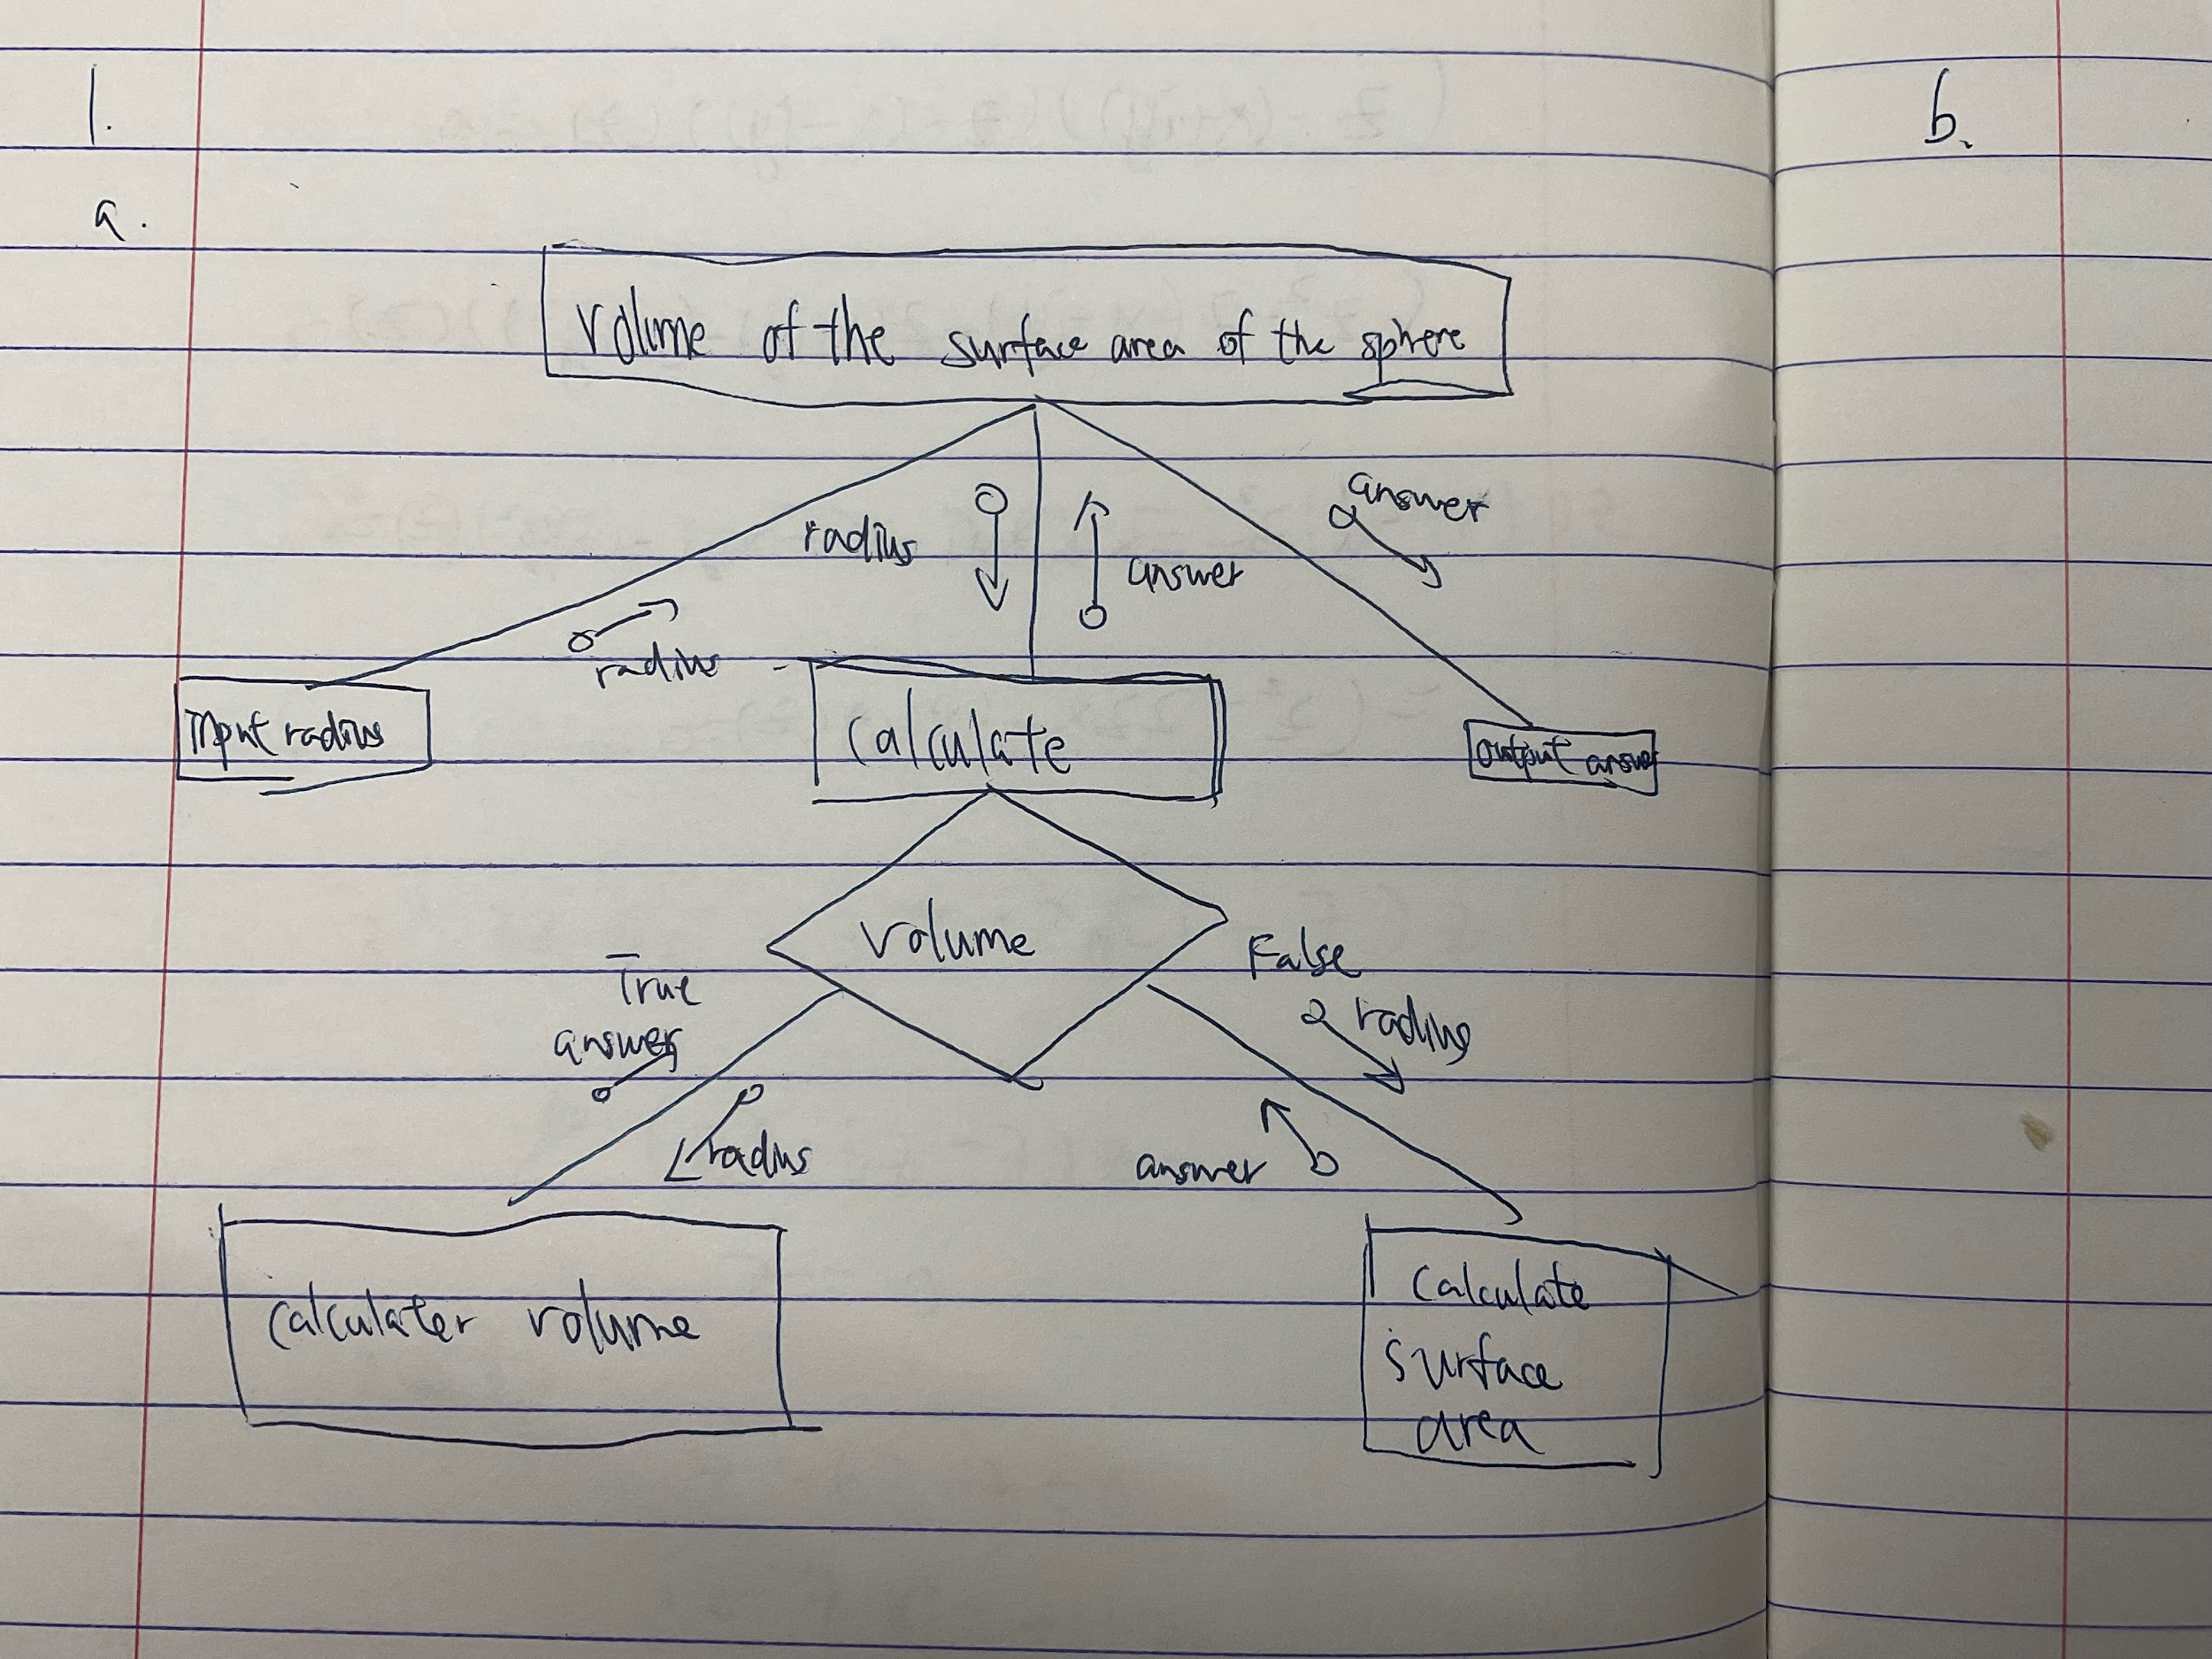 1.
b.
a.
Volume of the surface area of the sphere
answer
radius
answer
radius
Input radius
calculate
Output answer
volume
True
False
answer
radius
radius
answer
calculater volume
Calculate
surface
area